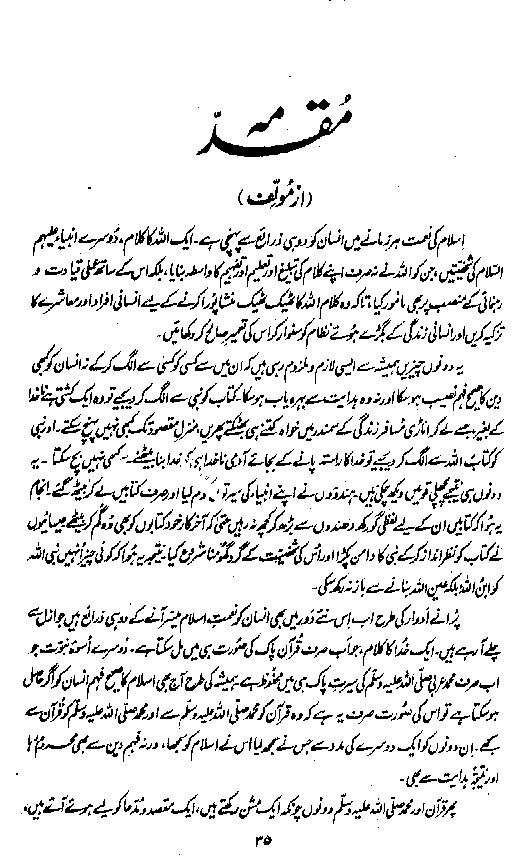 مُقدمہ
(از مؤلف)
اسلام کی نعمت ہر زمانے میں انسان کو دو ہی ذرائع سے پہنچی ہے۔ ایک اللہ کا کلام، دُوسرے انبیاء علیہم
السّلام کی شخصیتیں، جن کو اللہ نے نہ صرف اپنے کلام کی تبلیغ اور تعلیم اور تفہیم کا واسطہ بنایا، بلکہ اس کے ساتھ عملی قیادت و
رہنمائی کے منصب پر بھی مامور کیا، تاکہ وہ کلام اللہ کا ٹھیک ٹھیک منشا پورا کرنے کے لیے انسانی افراد اور معاشرے کا
تزکیہ کریں اور انسانی زندگی کے بگڑے ہوئے نظام کو سنوار کر اس کی تعمیرِ صالح کر دکھائیں۔
یہ دونوں چیزیں ہمیشہ سے ایسی لازم و ملزوم رہی ہیں کہ ان میں سے کسی کو کسی سے الگ کر کے نہ انسان کو کبھی
دین کا صحیح فہم نصیب ہو سکا اور نہ وہ ہدایت سے بہرہ یاب ہو سکا۔ کتاب کو نبی سے الگ کر دیجیے تو وہ ایک کشتی ہے ناخدا
کے بغیر جسے لے کر اناڑی مسافر زندگی کے سمندر میں خواہ کتنے ہی بھٹکتے پھریں، منزلِ مقصود تک کبھی نہیں پہنچ سکتے۔ اور نبی
کو کتاب اللہ سے الگ کر دیجیے تو خدا کا راستہ پانے کے بجائے آدمی ناخدا ہی کو خدا بنا بیٹھنے سے کبھی نہیں بچ سکتا۔ یہ
دونوں ہی نتیجے پچھلی قومیں دیکھ چکی ہیں۔ ہندوؤں نے اپنے انبیاء کی سیرتوں کو گم کیا اور صرف کتابیں لے کر بیٹھ گئے۔ انجام
یہ ہوا کہ کتابیں ان کے لیے لفظی گورکھ دھندوں سے بڑھ کر کچھ نہ رہیں حتیٰ کہ آخرکار خود کتابوں کو بھی وُہ گم کر بیٹھے۔ عیسائیوں
نے کتاب کو نظر انداز کر کے نبی کا دامن پکڑا اور اُس کی شخصیت کے گرد گھُومنا شروع کیا۔ نتیجہ یہ ہوا کہ کوئی چیز انہیں نبی اللہ
کو ابن اللہ بلکہ عین اللہ بنانے سے باز نہ رکھ سکی۔
پُرانے اَدوار کی طرح اب اِس نئے دَور میں بھی انسان کو نعمتِ اسلام میسر آنے کے دو ہی ذرائع ہیں جو ازل سے
چلے آ رہے ہیں۔ ایک خدا کا کلام، جو اب صرف قُرآنِ پاک کی صُورت ہی میں مل سکتا ہے۔ دُوسرے اُسوۂ نبوّت جو
اب صرف محمد عربی صلی اللہ علیہ وسلّم کی سیرتِ پاک ہی میں محفوظ ہے۔ ہمیشہ کی طرح آج بھی اسلام کا صحیح فہم انسان کو اگر حاصل
ہو سکتا ہے تو اس کی صُورت صرف یہ ہے کہ وہ قرآن کو محمد صلی اللہ علیہ وسلّم سے اور محمد صلی اللہ علیہ وسلم کو قرآن سے
سمجھے۔ اِن دونوں کو ایک دوسرے کی مدد سے جس نے سمجھ لیا اُس نے اسلام کو سمجھا، ورنہ فہمِ دین سے بھی محروم رہا
اور نتیجۃً ہدایت سے بھی۔
پھر قرآن اور محمد صلی اللہ علیہ وسلّم دونوں چونکہ ایک مشن رکھتے ہیں، ایک مقصد و مُدّعا کو لیے ہوئے آئے ہیں،
۳۵